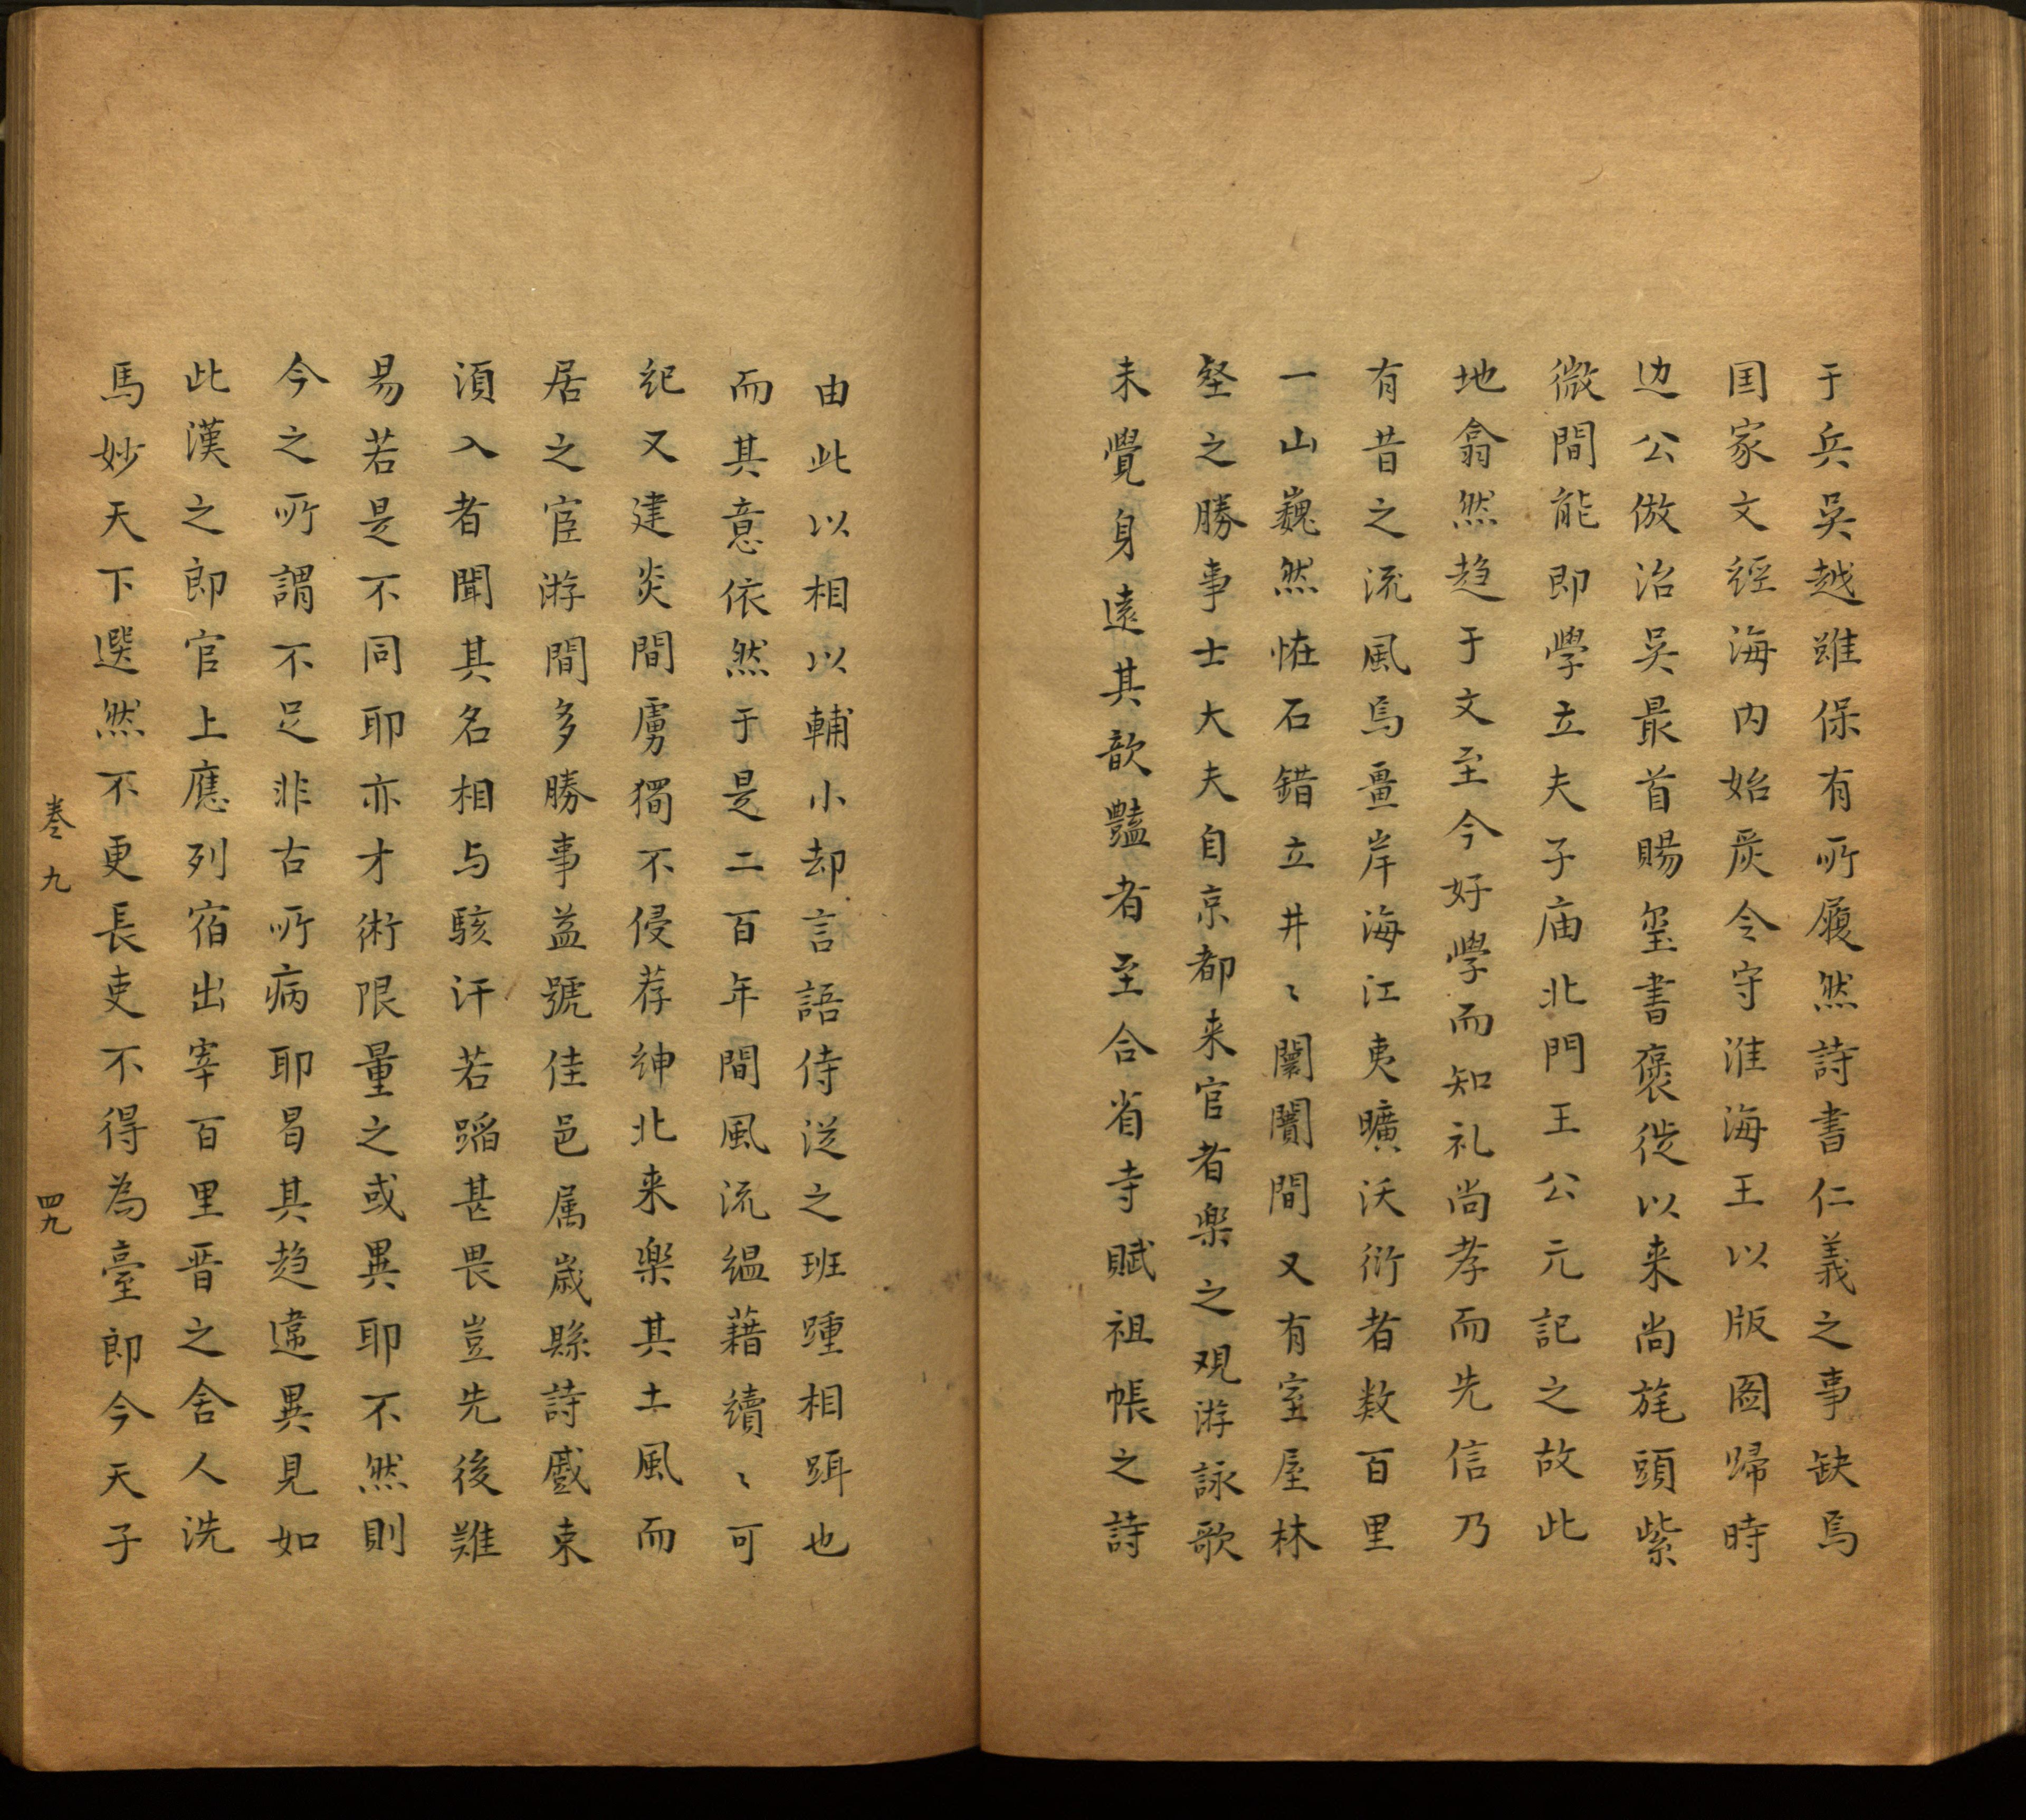 于兵吳越雖保有所履然詩書仁義之事缺焉
国家文經海内始戻令守淮海王以版圖歸時
边公倣治吳最首賜玺書褒徙以来尚旄頭紫
微間能即學立夫子庙北門王公元記之故此
地翕然趋于文至今好學而知礼尚孝而先信乃
有昔之流風焉畺岸海江夷曠沃衍者数百里
一山巍然恠石錯立井〻闤闠間又有室屋林
壑之勝事士大夫自京都来官者楽之观游詠歌
未覺身遠其歆豔者至合省寺賦祖帳之詩
由此以相以輔小却言語侍従之班踵相踵也
而其意依然于是二百年間風流緼藉續〻可
纪又建炎間虜獨不侵荐绅北来楽其土風而
居之宦游間多勝事益號佳邑属歳縣詩處東
湏入者聞其名相与駭汗若蹈甚畏豈先後難
易若是不同耶亦才術限量之或異耶不然則
今之所謂不足非古所病耶曷其趋違異見如
此漢之郎官上應列宿出宰百里晋之舎人洗
馬妙天下選然不更長吏不得為臺郎今天子
卷九
四九